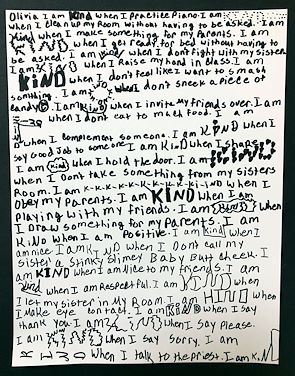 Olivia I am Kind when I Practice Piano. I am
when I clean up my Room without having to be asked. I am
Kind when I make something for my Parents. I am
KIND when I get ready for bed without having to
be asked. I am kind when I don't fight with my sister
I am KIND when I Raise my hand in class. I am
KiND when I don't feel like I want to smash
somthing. I am when I don't sneek a piece of
candy. I am Kind when I invite my friends over. I am
when I dont eat to mach food. I am
D when I complement someone. I am KIND when I
say Good Job to someone I am KiND when I share
I am kind when I hold the door. I am KIND
when I Dont take something from my sisters
Room. I am K-K-K-K-K-K-K-Ki-IND when I
Obey my Parents. I am KIND when I am
Playing with my friends. I am KIND when
I Draw something for my Parents. I am
KiND when I am Positive. I am kind when I
am nice. I am K, ND when I Dont call my
sister a Stinky Slimey Baby Butt Cheek. I
am KIND when I am Nice to my friends. I am
kind when I am Respectful. I am KIND when
I let my sister in My Room. I am KIND when
I Make eye contact. I am KIND when I say
thank you. I am KIND when I say Please.
I am KIND when I say Sorry. I am
KIND when I talk to the Priest. I am KIND